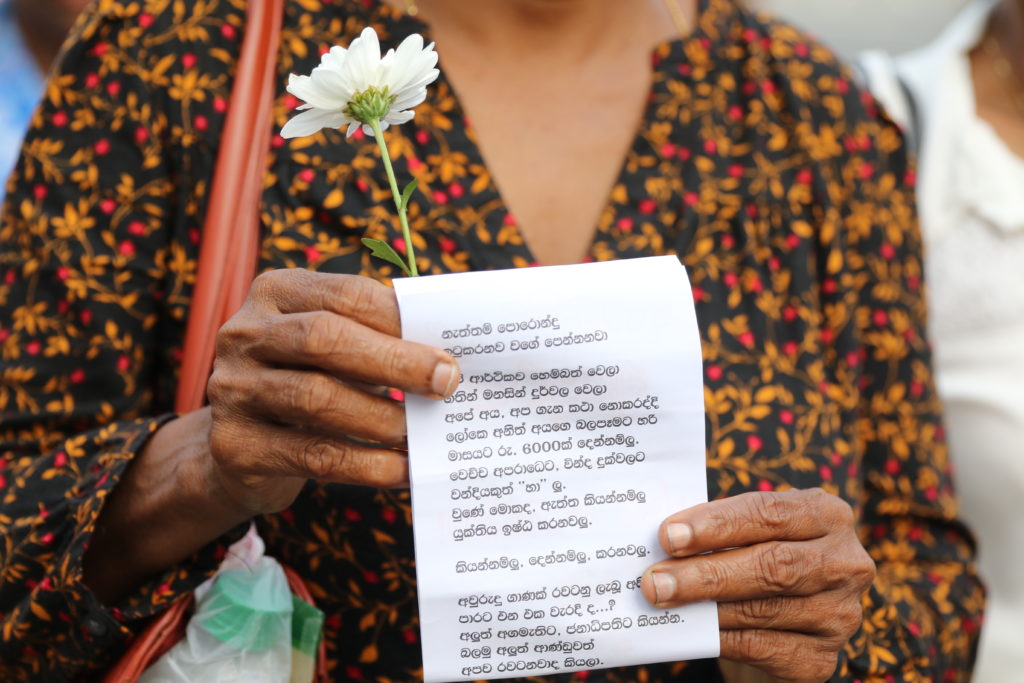 නැත්තම් පොරොන්දු
ටුකරනව වගේ පෙන්නනවා
ආර්ථිකව හෙම්බත් වෙලා
ගතින් මනසින් දුර්වල වෙලා
අපේ අය, අප ගැන කථා නොකරද්දි
ලෝකෙ අනිත් අයගෙ බලපෑමට හරි
මාසයට රු. 6000ක් දෙන්නම්ලු.
වෙච්ච අපරාධෙට, වින්ද දුක්වලට
වන්දියකුත් "හා" ලු.
වුණේ මොකද, ඇත්ත කියන්නම්ලු
යුක්තිය ඉෂ්ඨ කරනවලු.
කියන්නම්ලු, දෙන්නම්ලු, කරනවලු.
අවුරුදු ගාණක් රවටනු ලැබූ අපි
පාරට එන එක වැරදි ද...?
අලුත් අගමැතිට, ජනාධිපතිට කියන්න.
බලමු අලුත් ආණ්ඩුවත්
අපව රවටනවාද කියලා.